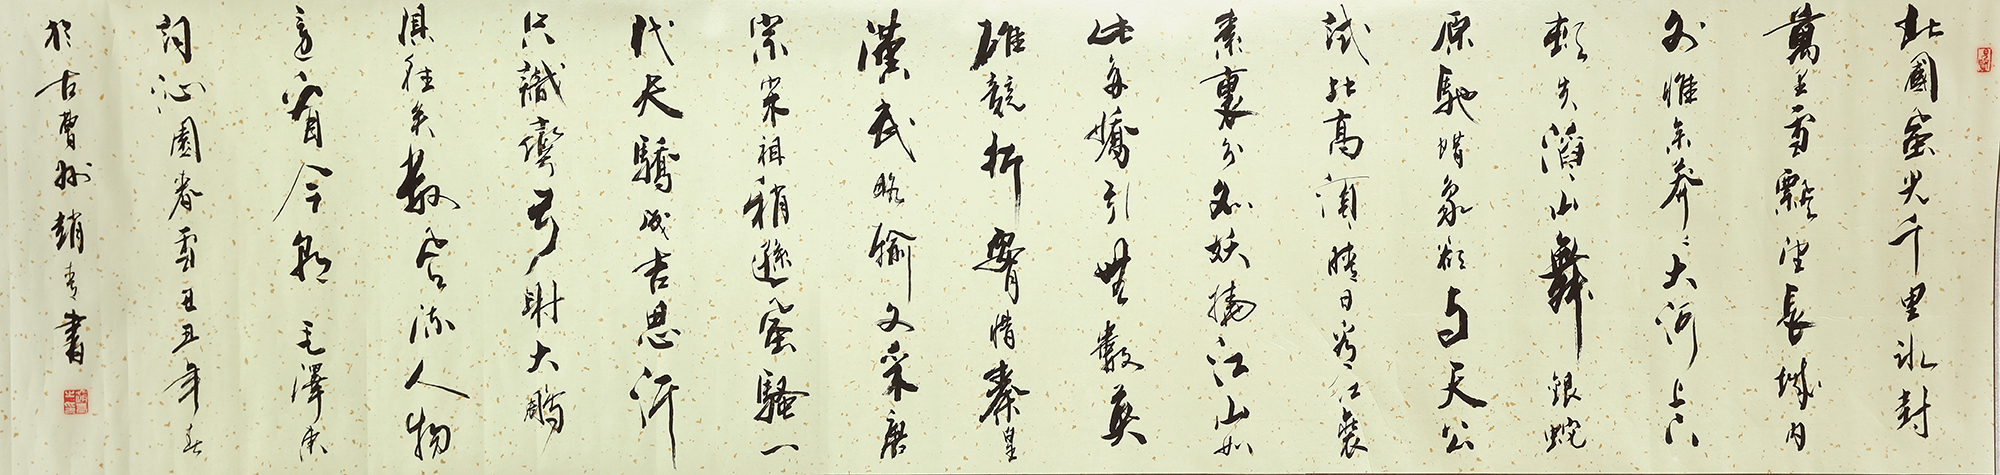 北國風光千里冰封
萬里雪飄望長城內
外惟余莽々大河上下
頓失滔々山舞銀蛇
原馳蜡象欲与天公
試比高須晴日看红裝
素裹分外妖娆江山如
此多嬌引無數英
雄競折腰惜秦皇
漢武略輸文采唐
宗宋祖稍遜風騷一
代天驕成吉思汗
只識彎弓射大鵰
俱往矣數風流人物
還看今朝 毛澤東
詞沁園春雪丑年春
於古曹州趙書